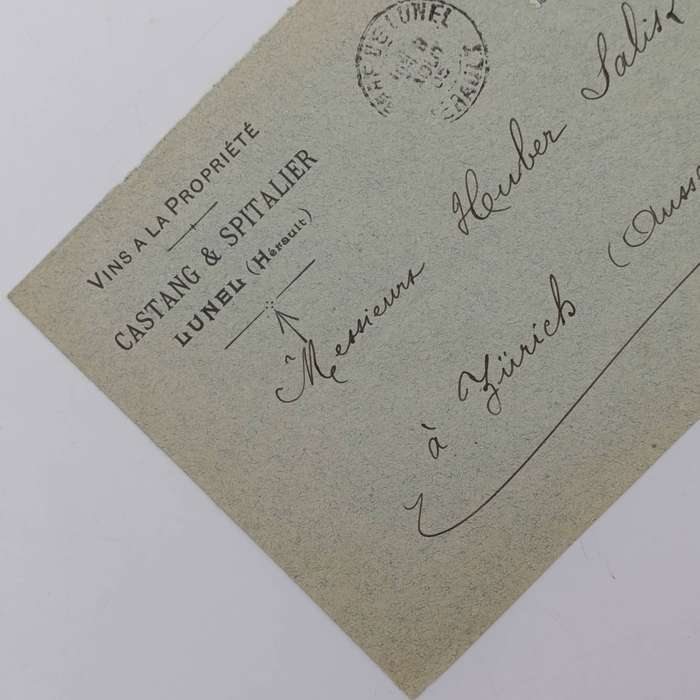 VINS A LA PROPRIÉTÉ
CASTANG & SPITALIER
LUNEL (Hérault)
DE LUNEL
HÉRAULT
Messieurs Huber Salis
à Zürich